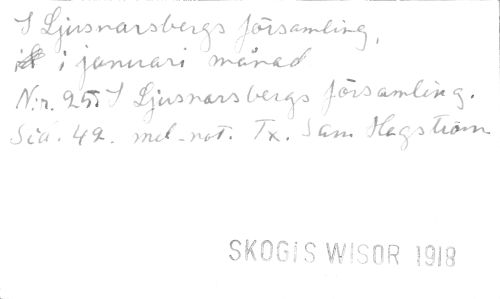 I Ljusnarsbergs församling,
i januari månad
N:r. 25. I Ljusnarsbergs församling.
Sid. 42. mel-not. Tx. Sam Hagström
SKOGIS WISOR 1918